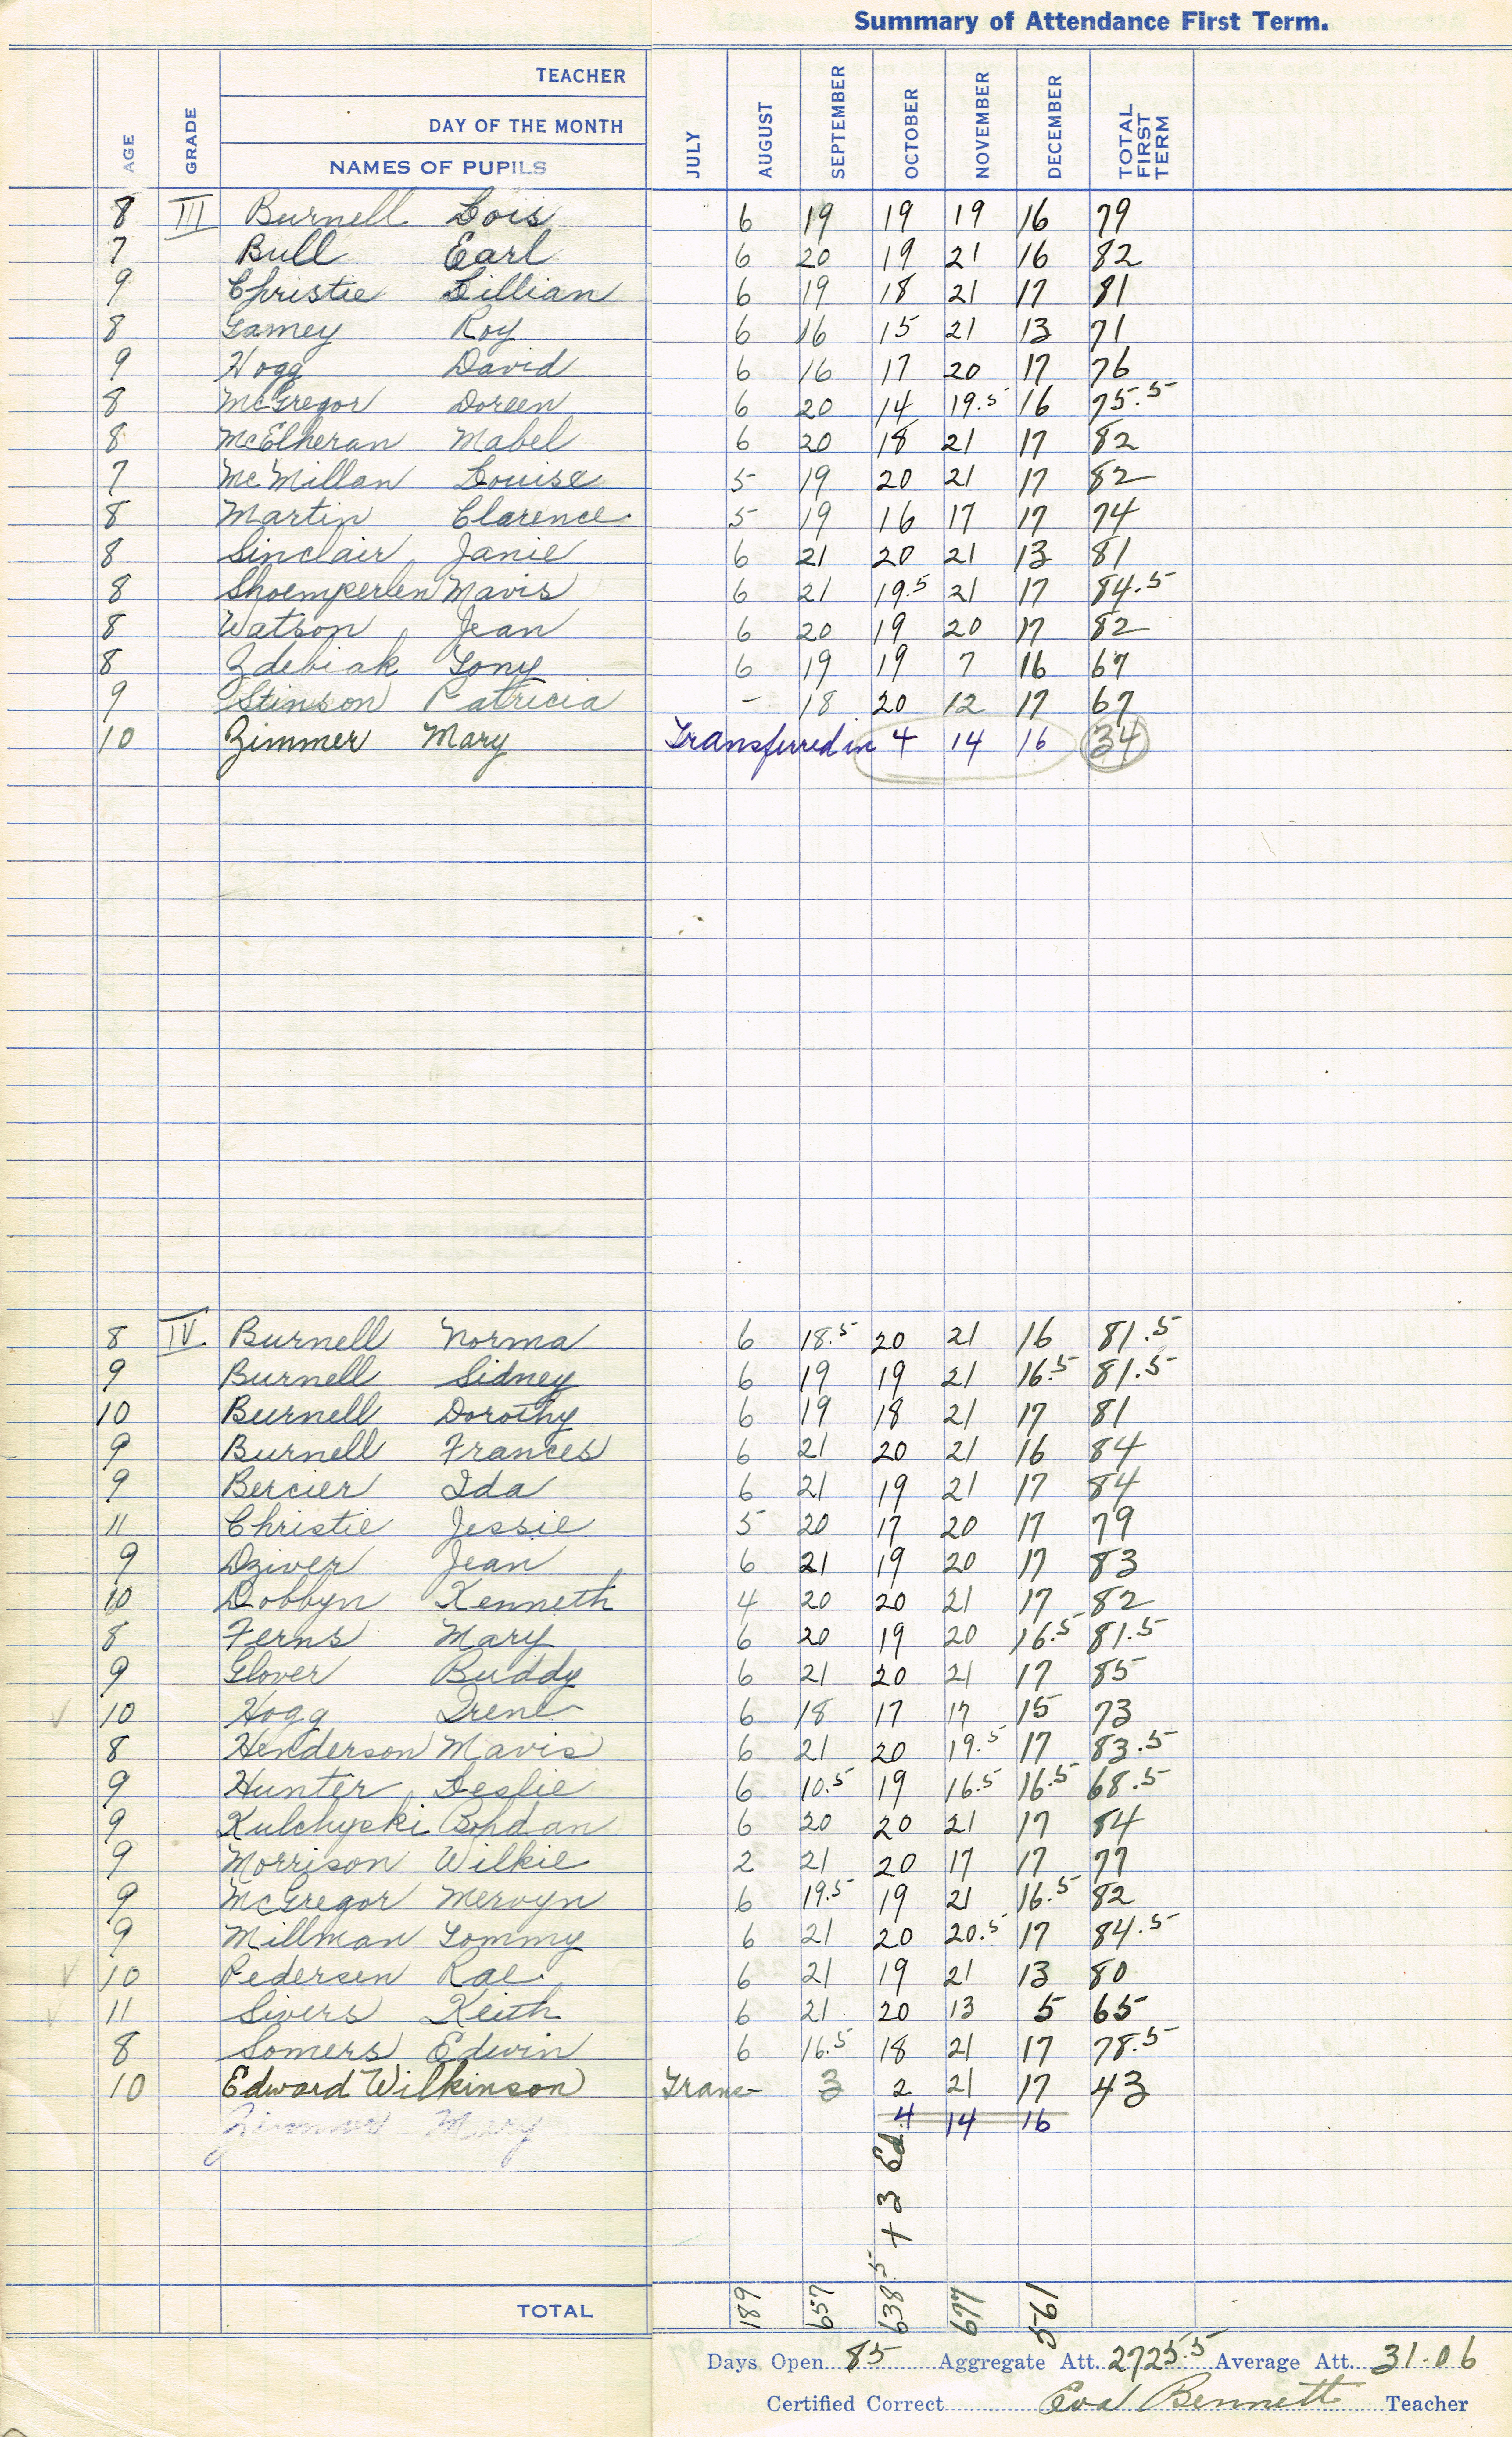 Summary of Attendance First Term.
AGE GRADE TEACHER DAY OF THE MONTH NAMES OF PUPILS JULY AUGUST SEPTEMBER OCTOBER NOVEMBER DECEMBER TOTAL FIRST TERM
8 III Burnell Lois 6 19 19 19 16 79
7 Bull Earl 6 20 19 21 16 82
9 Christie Lillian 6 19 18 21 17 81
8 Gamey Roy 6 16 15 21 13 71
9 Hogg David 6 16 17 20 17 76
8 McGregor Doreen 6 20 14 19.5 16 75.5
8 McElheran Mabel 6 20 18 21 17 82
7 McMillan Louise 5 19 20 21 17 82
8 Martin Clarence 5 19 16 17 17 74
8 Sinclair Janie 6 21 20 21 13 81
8 Shoemperlen Mavis 6 21 19.5 21 17 84.5
8 Watson Jean 6 20 19 20 17 82
8 Zdebiak Tony 6 19 19 7 16 67
9 Stinson Patricia - 18 20 12 17 67
10 Zimmer Mary Transferred in 4 14 16 34
8 IV Burnell Norma 6 18.5 20 21 16 81.5
9 Burnell Sidney 6 19 19 21 16.5 81.5
10 Burnell Dorothy 6 19 18 21 17 81
9 Burnell Frances 6 21 20 21 16 84
9 Bercier Ida 6 21 19 21 17 84
11 Christie Jessie 5 20 17 20 17 79
9 Dziver Jean 6 21 19 20 17 83
10 Dobbyn Kenneth 4 20 20 21 17 82
8 Ferns Mary 6 20 19 20 16.5 81.5
9 Glover Buddy 6 21 20 21 17 85
✓ 10 Hogg Irene 6 18 17 17 15 73
8 Henderson Mavis 6 21 20 19.5 17 83.5
9 Hunter Leslie 6 10.5 19 16.5 16.5 68.5
9 Kulchycki Bohdan 6 20 20 21 17 84
9 Morrison Wilkie 2 21 20 17 17 77
9 McGregor Mervyn 6 19.5 19 21 16.5 82
9 Millman Tommy 6 21 20 20.5 17 84.5
✓ 10 Pedersen Rae 6 21 19 21 13 80
✓ 11 Sivers Keith 6 21 20 13 5 65
8 Somers Edwin 6 16.5 18 21 17 78.5
10 Edward Wilkinson Trans- 3 2 21 17 43
Zimmer Mary 4 14 16
TOTAL 189 657 638.5 + 3 Ed. 677 561
Days Open 85 Aggregate Att. 2725.5 Average Att. 31.06
Certified Correct Eva Bennett Teacher